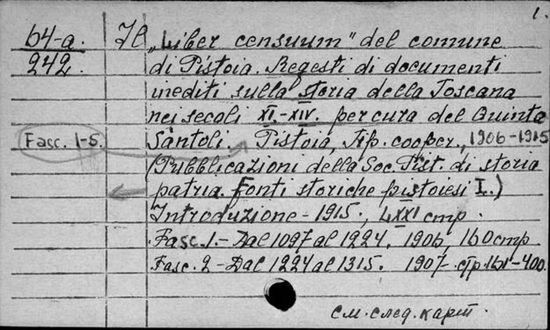 1.
64-a.
242.
Il „Liber censuum" del comune
di Pistoia. Regesti di documenti
inediti sulla storia della Toscana
nei secoli XI.-XIV. per cura del Quinto
Santoli. Pistoia, Tip. cooper., 1906-1915
Fasc. 1-5.
(Pubblicazioni della Soc. Pist. di storia
patria. Fonti storiche pistoiesi I.)
Introduzione - 1915., LXXI стр.
Fasc. 1. - Dal 1097 al 1224. 1906, 160 стр
Fasc. 2 - Dal 1224 al 1315. 1907 стр 161-400.
см. след. карт